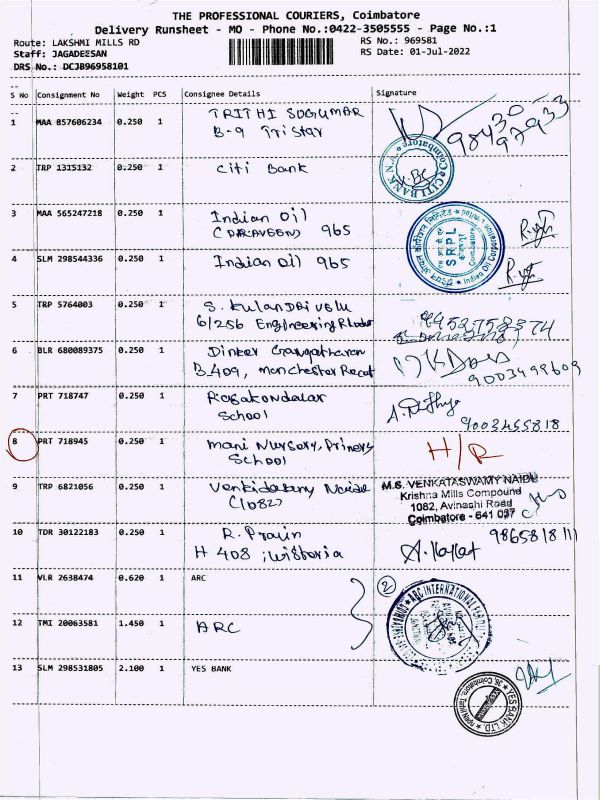 THE PROFESSIONAL COURIERS, Coimbatore
Delivery Runsheet - MO - Phone No.:0422-3505555 - Page No.:1
Route: LAKSHMI MILLS RD RS No.: 969581
Staff: JAGADEESAN RS Date: 01-Jul-2022
DRS No.: DCJB96958101
S No Consignment No Weight PCS Consignee Details Signature
1 MAA 857606234 0.250 1 TRITHI SUGUMAR
B-9 Tristar
98430
97933
2 TRP 1315132 0.250 1 Citi Bank
CITI BANK N.A. Coimbatore
3 MAA 565247218 0.250 1 Indian Oil
(PRAVEEN) 965
SRPL
Indian Oil Corporation Limited
4 SLM 298544336 0.250 1 Indian Oil 965
5 TRP 5764003 0.250 1 S. Kulandaivelu
6/256 Engineering
6 BLR 680089375 0.250 1 Dinker Gangatharan
B.409, Manchester
9003499609
7 PRT 718747 0.250 1 Rasakondalar
School
9003455818
8 PRT 718945 0.250 1 Mani Nursery, Primery
School
H/R
9 TRP 6821056 0.250 1 Venkidasamy Naidu
(1082)
M.S. VENKATASWAMY NAIDU
Krishna Mills Compound
1082, Avinashi Road
Coimbatore - 641 037
10 TDR 30122183 0.250 1 R. Pravin
H 408
9865818111
11 VLR 2638474 0.620 1 ARC
2
ARC INTERNATIONAL
12 TMI 20063581 1.450 1 ARC
13 SLM 298531805 2.100 1 YES BANK
YES BANK LTD.